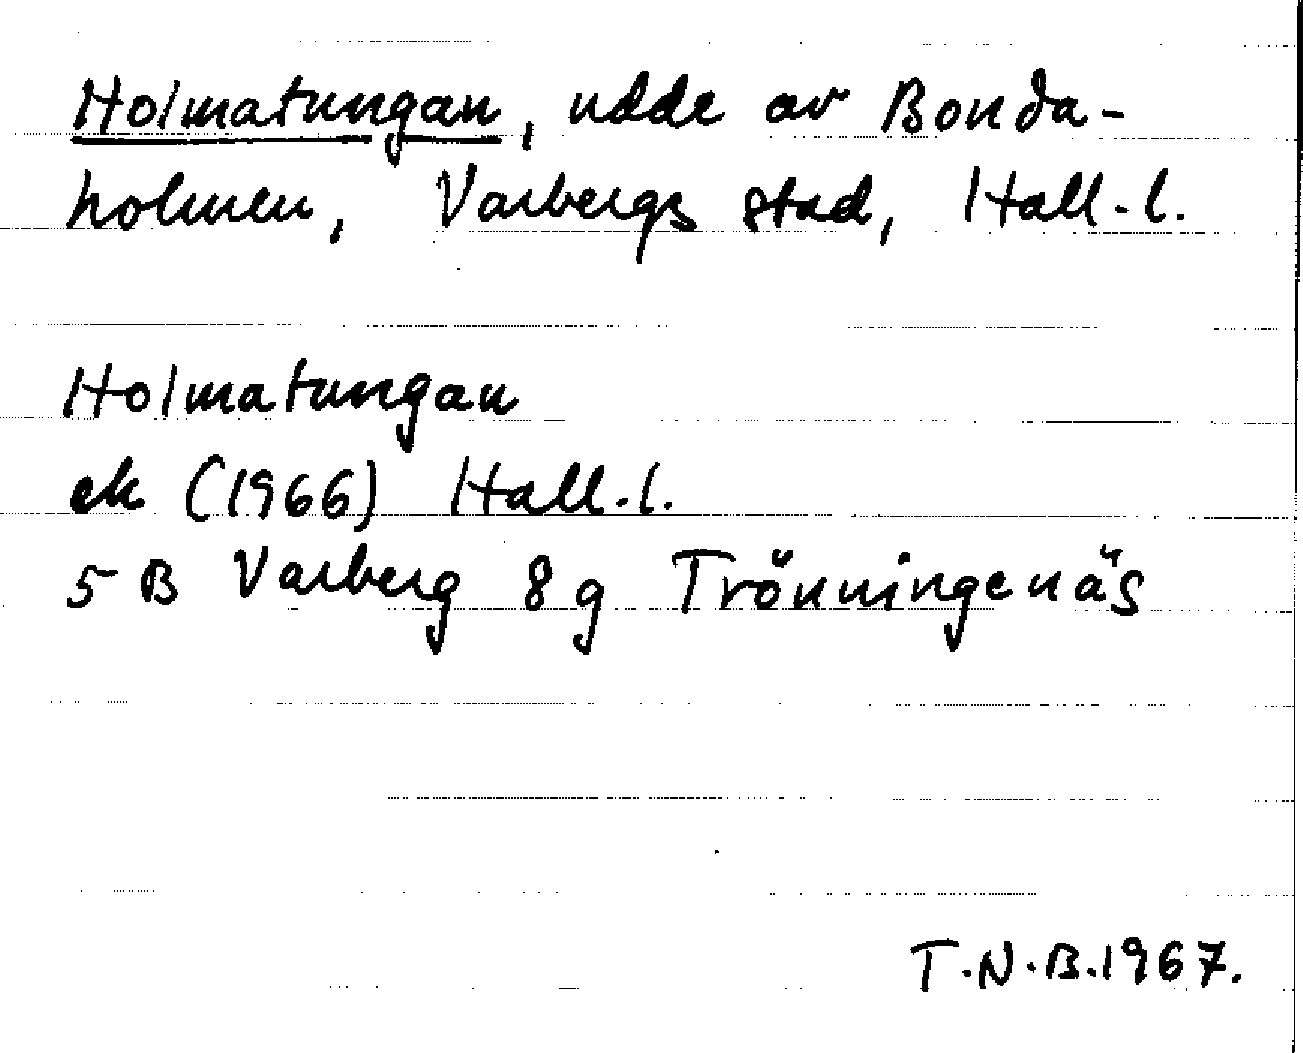 Holmatungan, udde av Bonda-
holmen, Varbergs stad, Hall. l.
Holmatungan
ek (1966) Hall. l.
5 B Varberg 8 g Trönningenäs
T.N.B. 1967.